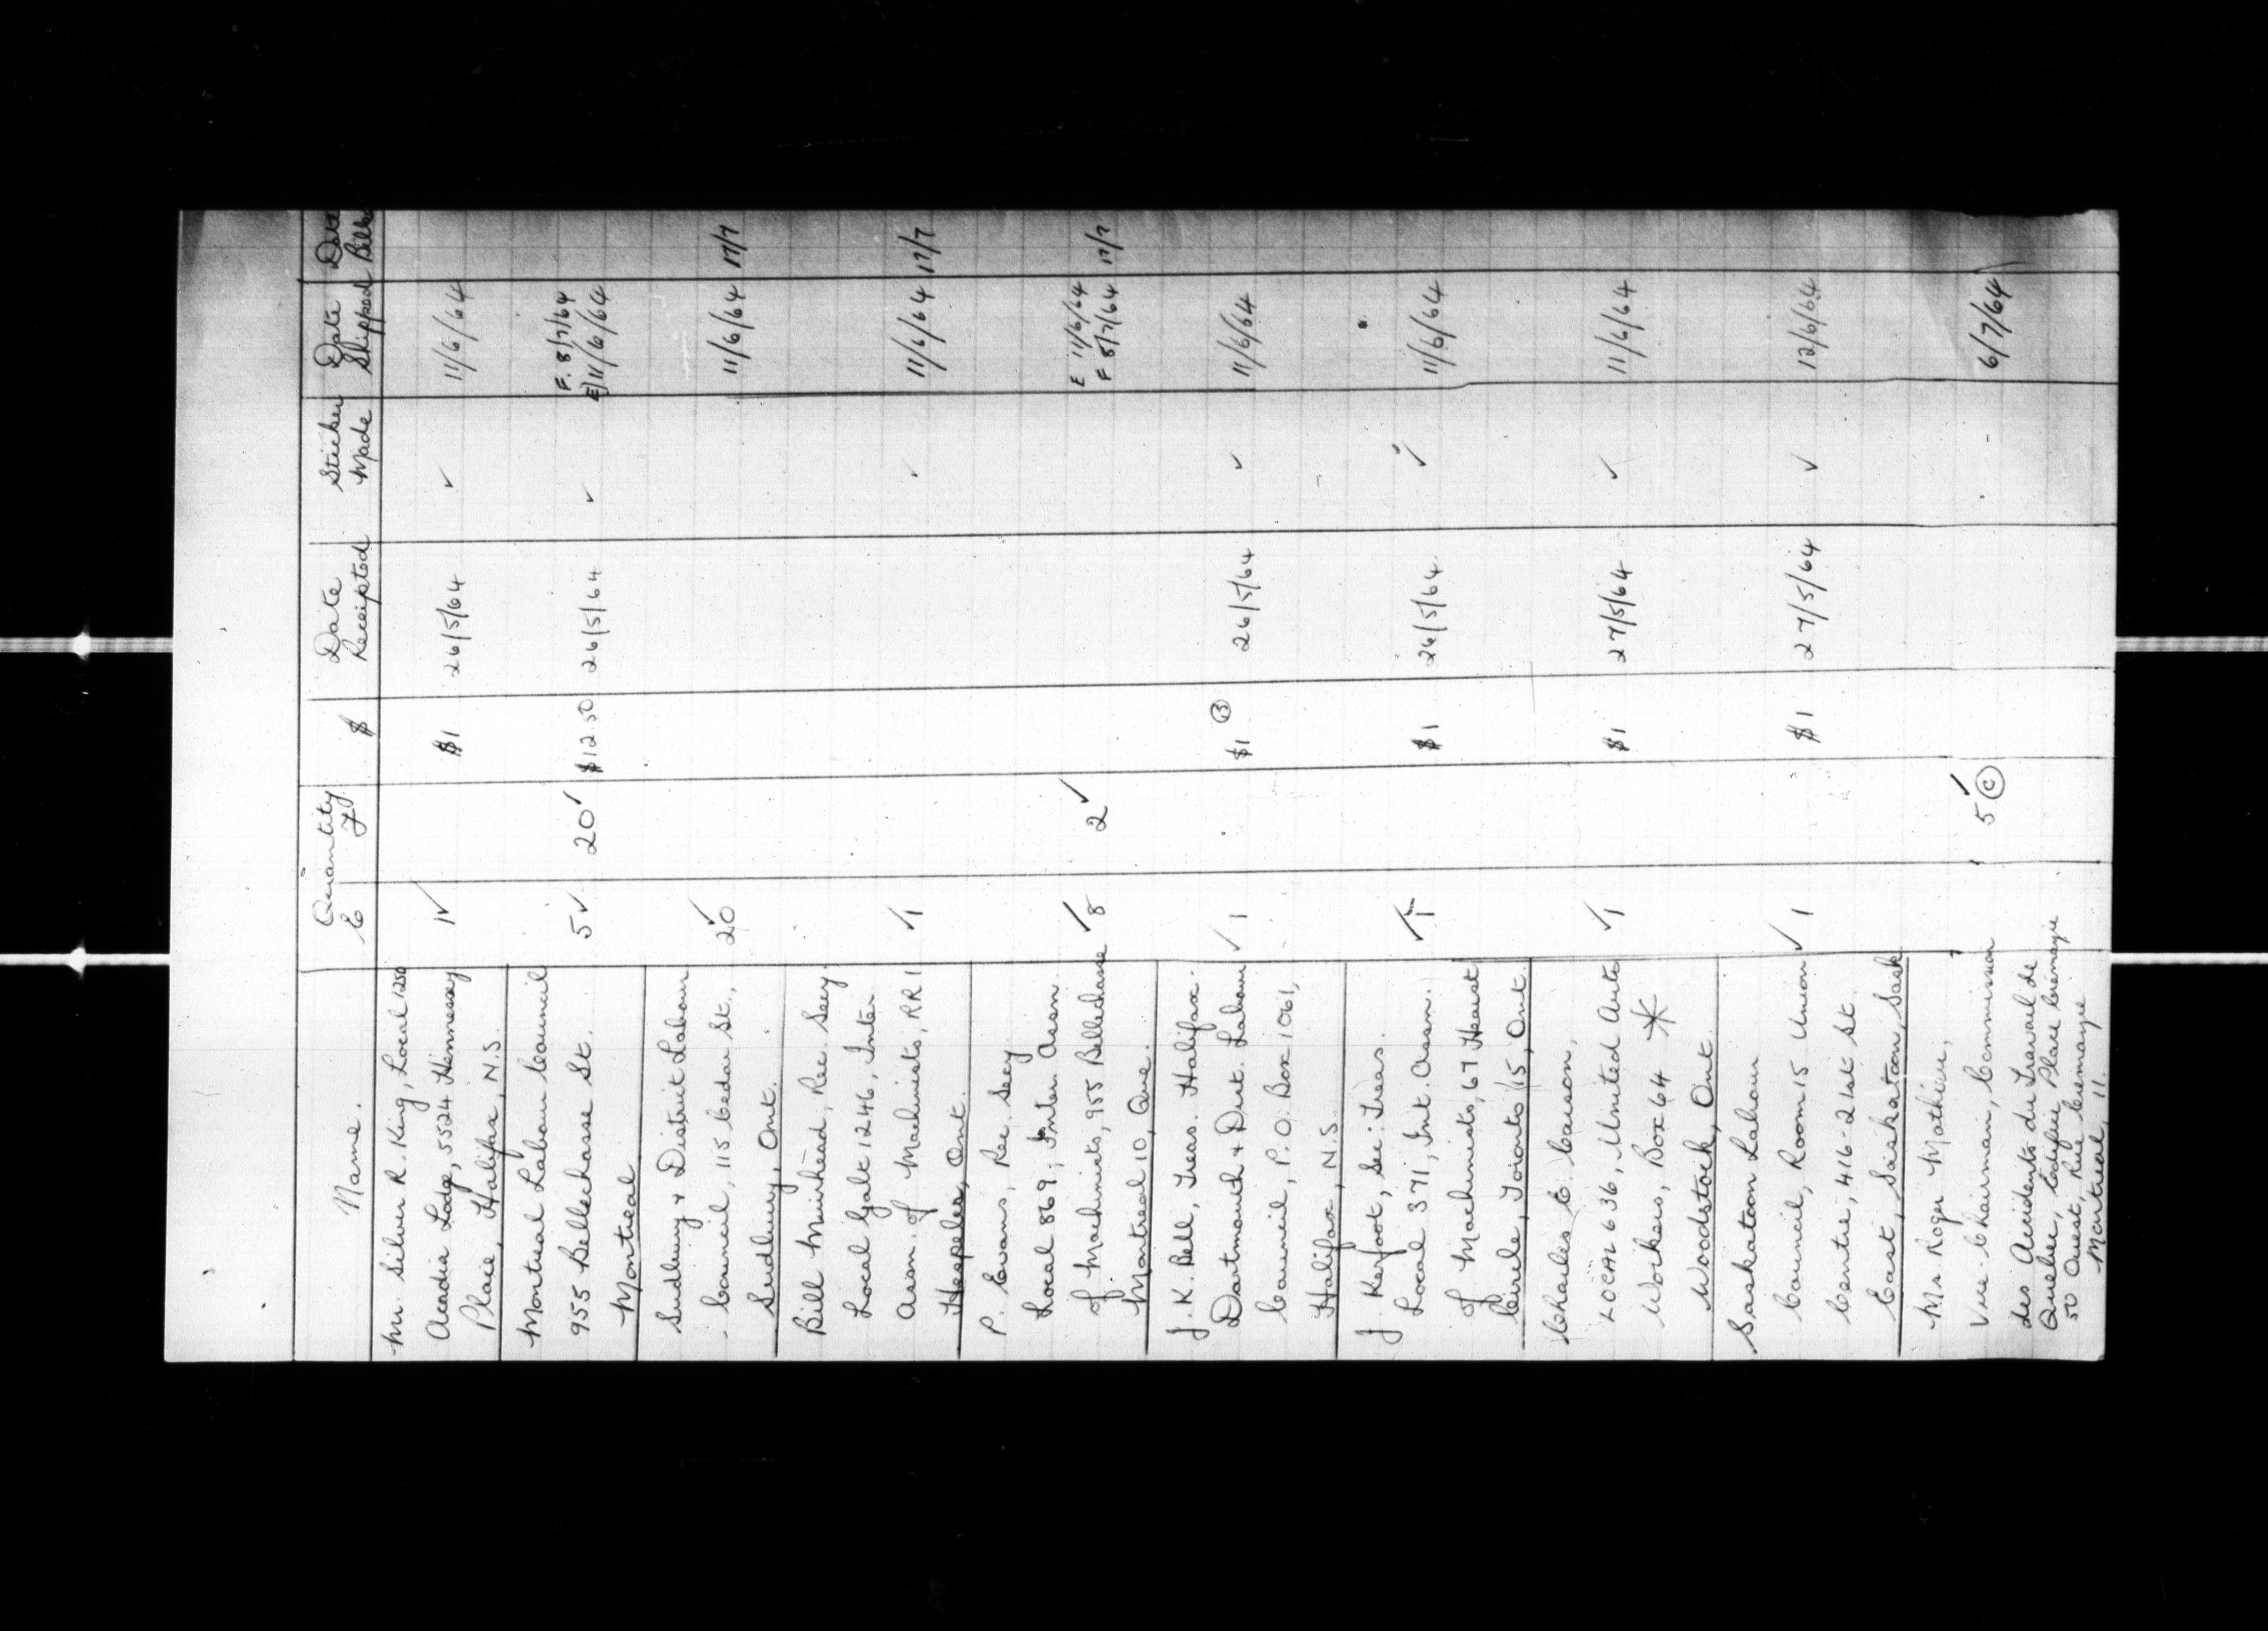 Name. Quantity E F $ Date Receipted Sticker Made Date Shipped Date Billed
Mr. Silver R. King, Local 1250
Acadia Lodge, 5524 Hennessy 1✓ $1 26/5/64 ✓ 11/6/64
Place, Halifax, N.S.
Montreal Labour Council F. 8/7/64
955 Bellechasse St. 5✓ 20✓ $12.50 26/5/64 ✓ E) 11/6/64
Montreal
Sudbury & District Labour
Council, 115 Cedar St., 20✓ 11/6/64 17/7
Sudbury, Ont.
Bill Muirhead, Rec. Secy
Local Galt, 1246, Inter.
Assn. of Machinists, RR 1 ✓1 ✓ 11/6/64 17/7
Hespeler, Ont.
P. Evans, Rec. Secy
Local 869, Inter. Assn. E 11/6/64
of Machinists, 955 Bellechasse ✓8 2✓ F 8/7/64 17/7
Montreal 10, Que.
J. K. Bell, Treas. Halifax-
Dartmouth & Dist. Labour ✓1 $1 (B) 26/5/64 ✓ 11/6/64
Council, P.O. Box 1061,
Halifax, N.S.
J. Kerfoot, Sec: Treas.
Local 371, Int. Assn. ✓1 $1 26/5/64 ✓ 11/6/64
of Machinists, 67 Heaust
Circle, Toronto 15, Ont.
Charles E. Causon,
LOCAL 636, United Auto ✓1 $1 27/5/64 ✓ 11/6/64
Workers, Box 64 *
Woodstock, Ont.
Saskatoon Labour
Council, Room 15 Union ✓1 $1 27/5/64 ✓ 12/6/64
Centre, 416-21st St.
East, Saskatoon, Sask
Mr. Roger Mathieu,
Vice-Chairman, Commission 5✓ (C) 6/7/64
des Accidents du Travail de
Quebec, Edifice Place Cremazie
50 Ouest, Rue Cremazie
Montreal, 11.